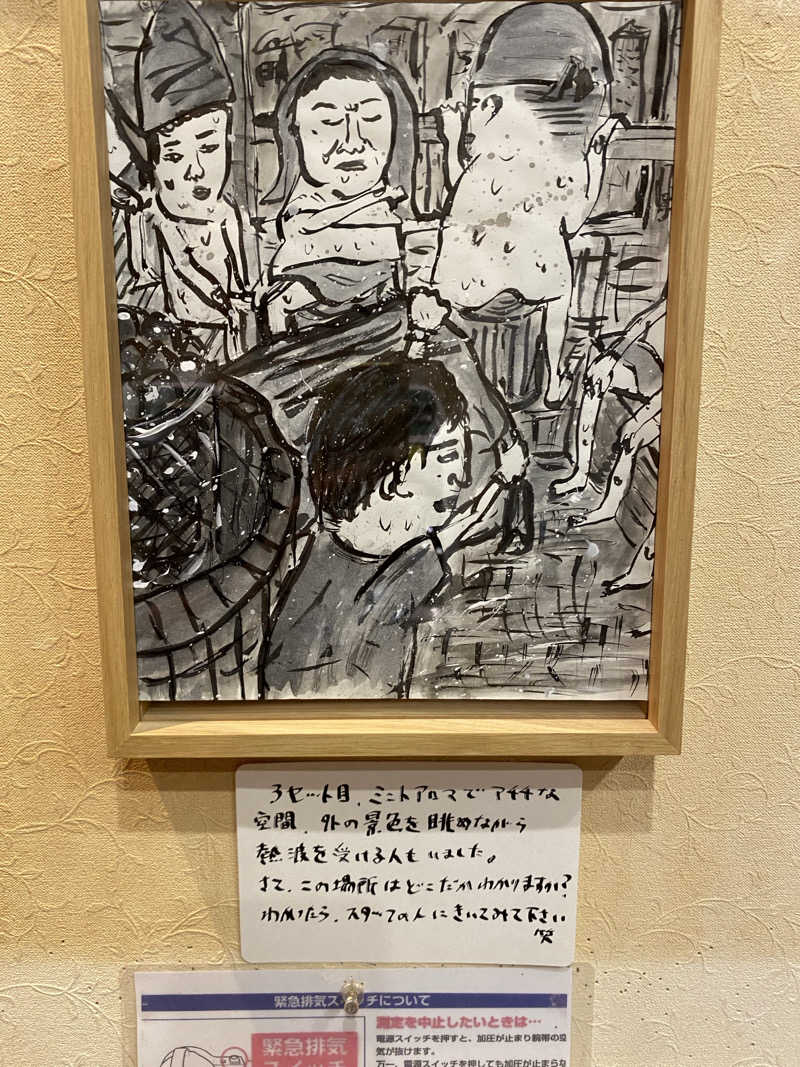 3セット目、ミントアロマでアチチな
空間、外の景色を眺めながら
熱波を受ける人もいました。
さて、この場所はどこだかわかりますか?
わかったら、スタッフの人にきいてみて下さい
笑
緊急排気スイッチについて
測定を中止したいときは…
緊急排気
電源スイッチを押すと、加圧が止まり腕帯の空
気が抜けます。
スイッチ
万一、電源スイッチを押しても加圧が止まらな